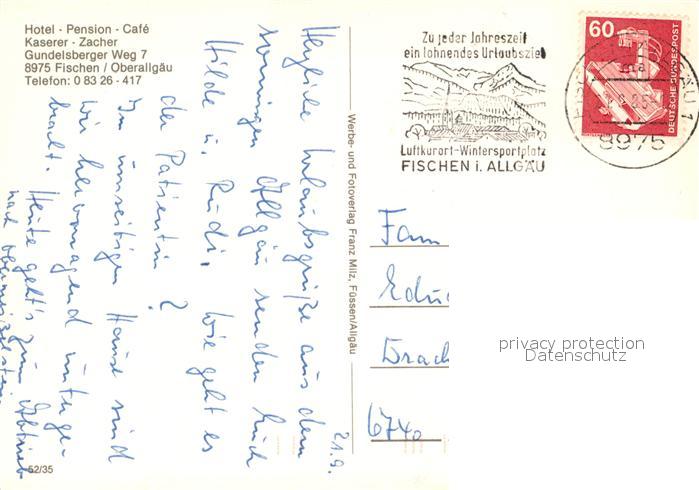 Hotel - Pension - Café
Kaserer - Zacher
Gundelsberger Weg 7
8975 Fischen / Oberallgäu
Telefon: 0 83 26 - 417
Zu jeder Jahreszeit
ein lohnendes Urlaubsziel
Luftkurort-Wintersportplatz
FISCHEN i. ALLGÄU
60
DEUTSCHE BUNDESPOST
8975
21.9.
Herzliche Urlaubsgrüße aus dem
sonnigen Allgäu senden Euch
Hilde u. Rudi. Wie geht es
der Patientin?
Im umseitigen Hause sind
wir hervorragend unterge-
bracht. Heute geht's zum Abtrieb
nach
Werbe- und Fotoverlag Franz Milz, Füssen/Allgäu
Fam
Edu
Drach
6740
privacy protection
Datenschutz
52/35